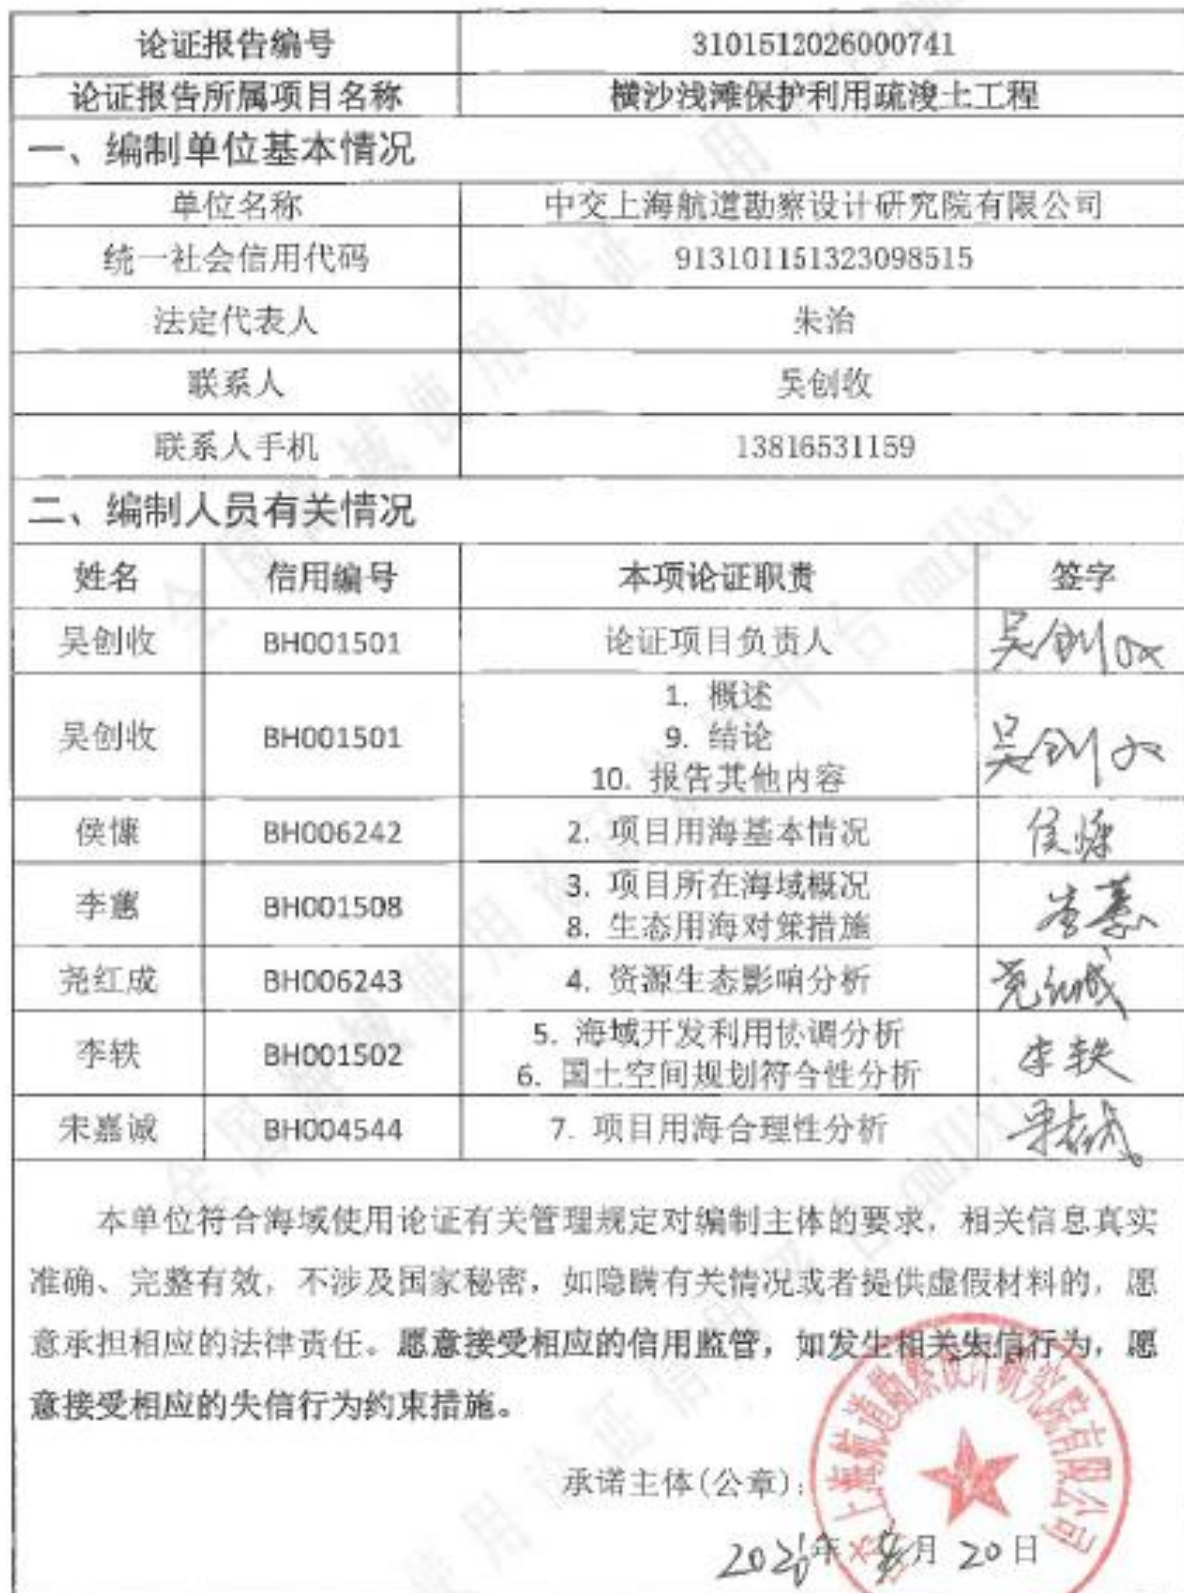 论证报告编号 3101512026000741
论证报告所属项目名称 横沙浅滩保护利用疏浚土工程
一、编制单位基本情况
单位名称 中交上海航道勘察设计研究院有限公司
统一社会信用代码 913101151323098515
法定代表人 朱治
联系人 吴创收
联系人手机 13816531159
二、编制人员有关情况
姓名 信用编号 本项论证职责 签字
吴创收 BH001501 论证项目负责人 吴创收
吴创收 BH001501 1. 概述
9. 结论
10. 报告其他内容 吴创收
侯慷 BH006242 2. 项目用海基本情况 侯慷
李蕙 BH001508 3. 项目所在海域概况
8. 生态用海对策措施 李蕙
尧红成 BH006243 4. 资源生态影响分析 尧红成
李轶 BH001502 5. 海域开发利用协调分析
6. 国土空间规划符合性分析 李轶
宋嘉诚 BH004544 7. 项目用海合理性分析 宋嘉诚
本单位符合海域使用论证有关管理规定对编制主体的要求，相关信息真实
准确、完整有效，不涉及国家秘密，如隐瞒有关情况或者提供虚假材料的，愿
意承担相应的法律责任。愿意接受相应的信用监管，如发生相关失信行为，愿
意接受相应的失信行为约束措施。
承诺主体(公章)：
2026年 月 20日
中交上海航道勘察设计研究院有限公司